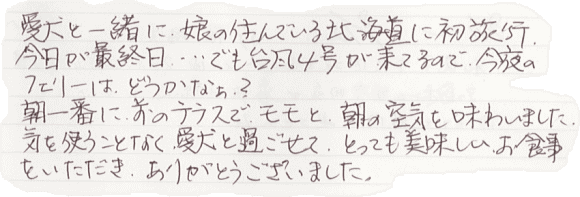 愛犬と一緒に、娘の住んでいる北海道に初旅行、
今日が最終日・・・でも台風4号が来てるので、今夜の
フェリーは、どうかなぁ?
朝一番に、前のテラスで、モモと、朝の空気を味わいました。
気を使うことなく、愛犬と過ごせて、とっても美味しい、お食事
をいただき、ありがとうございました。